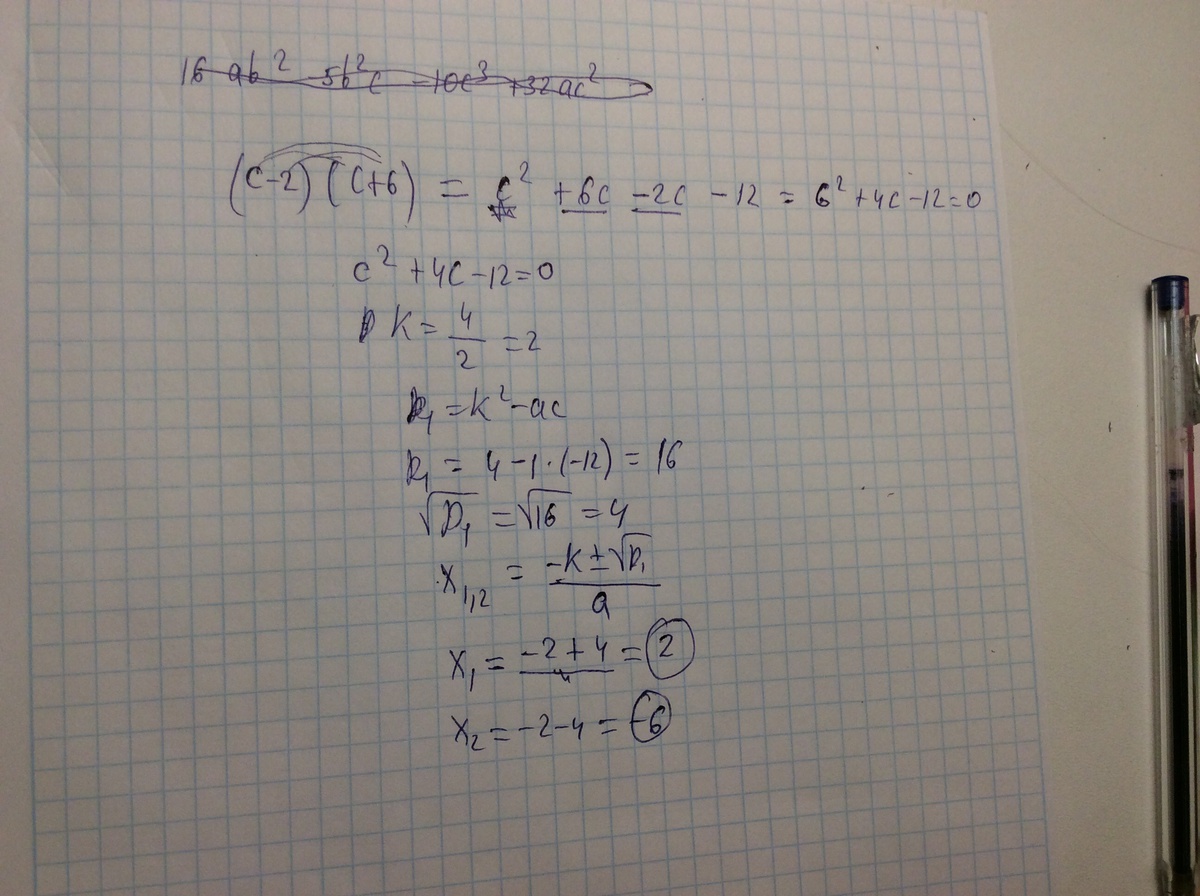 16 ab² -5b²c -10c³ +32ac²
(c-2) (c+6) = c² +6c -2c -12 = 6² +4c -12=0
c² +4c -12=0
K = 4/2 = 2
D₁ = k² - ac
D₁ = 4 -1·(-12) = 16
√D₁ = √16 = 4
x₁,₂ = (-k ± √D₁)/a
x₁ = -2 + 4 = 2
x₂ = -2 -4 = -6